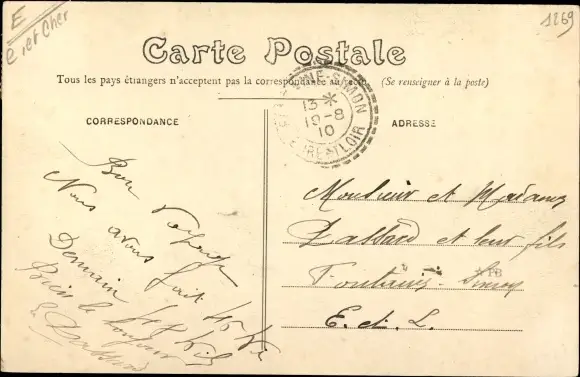 E
et Cher
1269
Carte Postale
Tous les pays étrangers n'acceptent pas la correspondance au recto. (Se renseigner à la poste)
CORRESPONDANCE
ADRESSE
NE-SIMON
13 *
19-8
10
EURE-ET-LOIR
Bon voyage
Nous avons fait 45 Kil
Demain 118 Kil
Bien le bonjour
Monsieur et Madame
Lassard et leur fils
Fontaine-Simon
E. et. L.